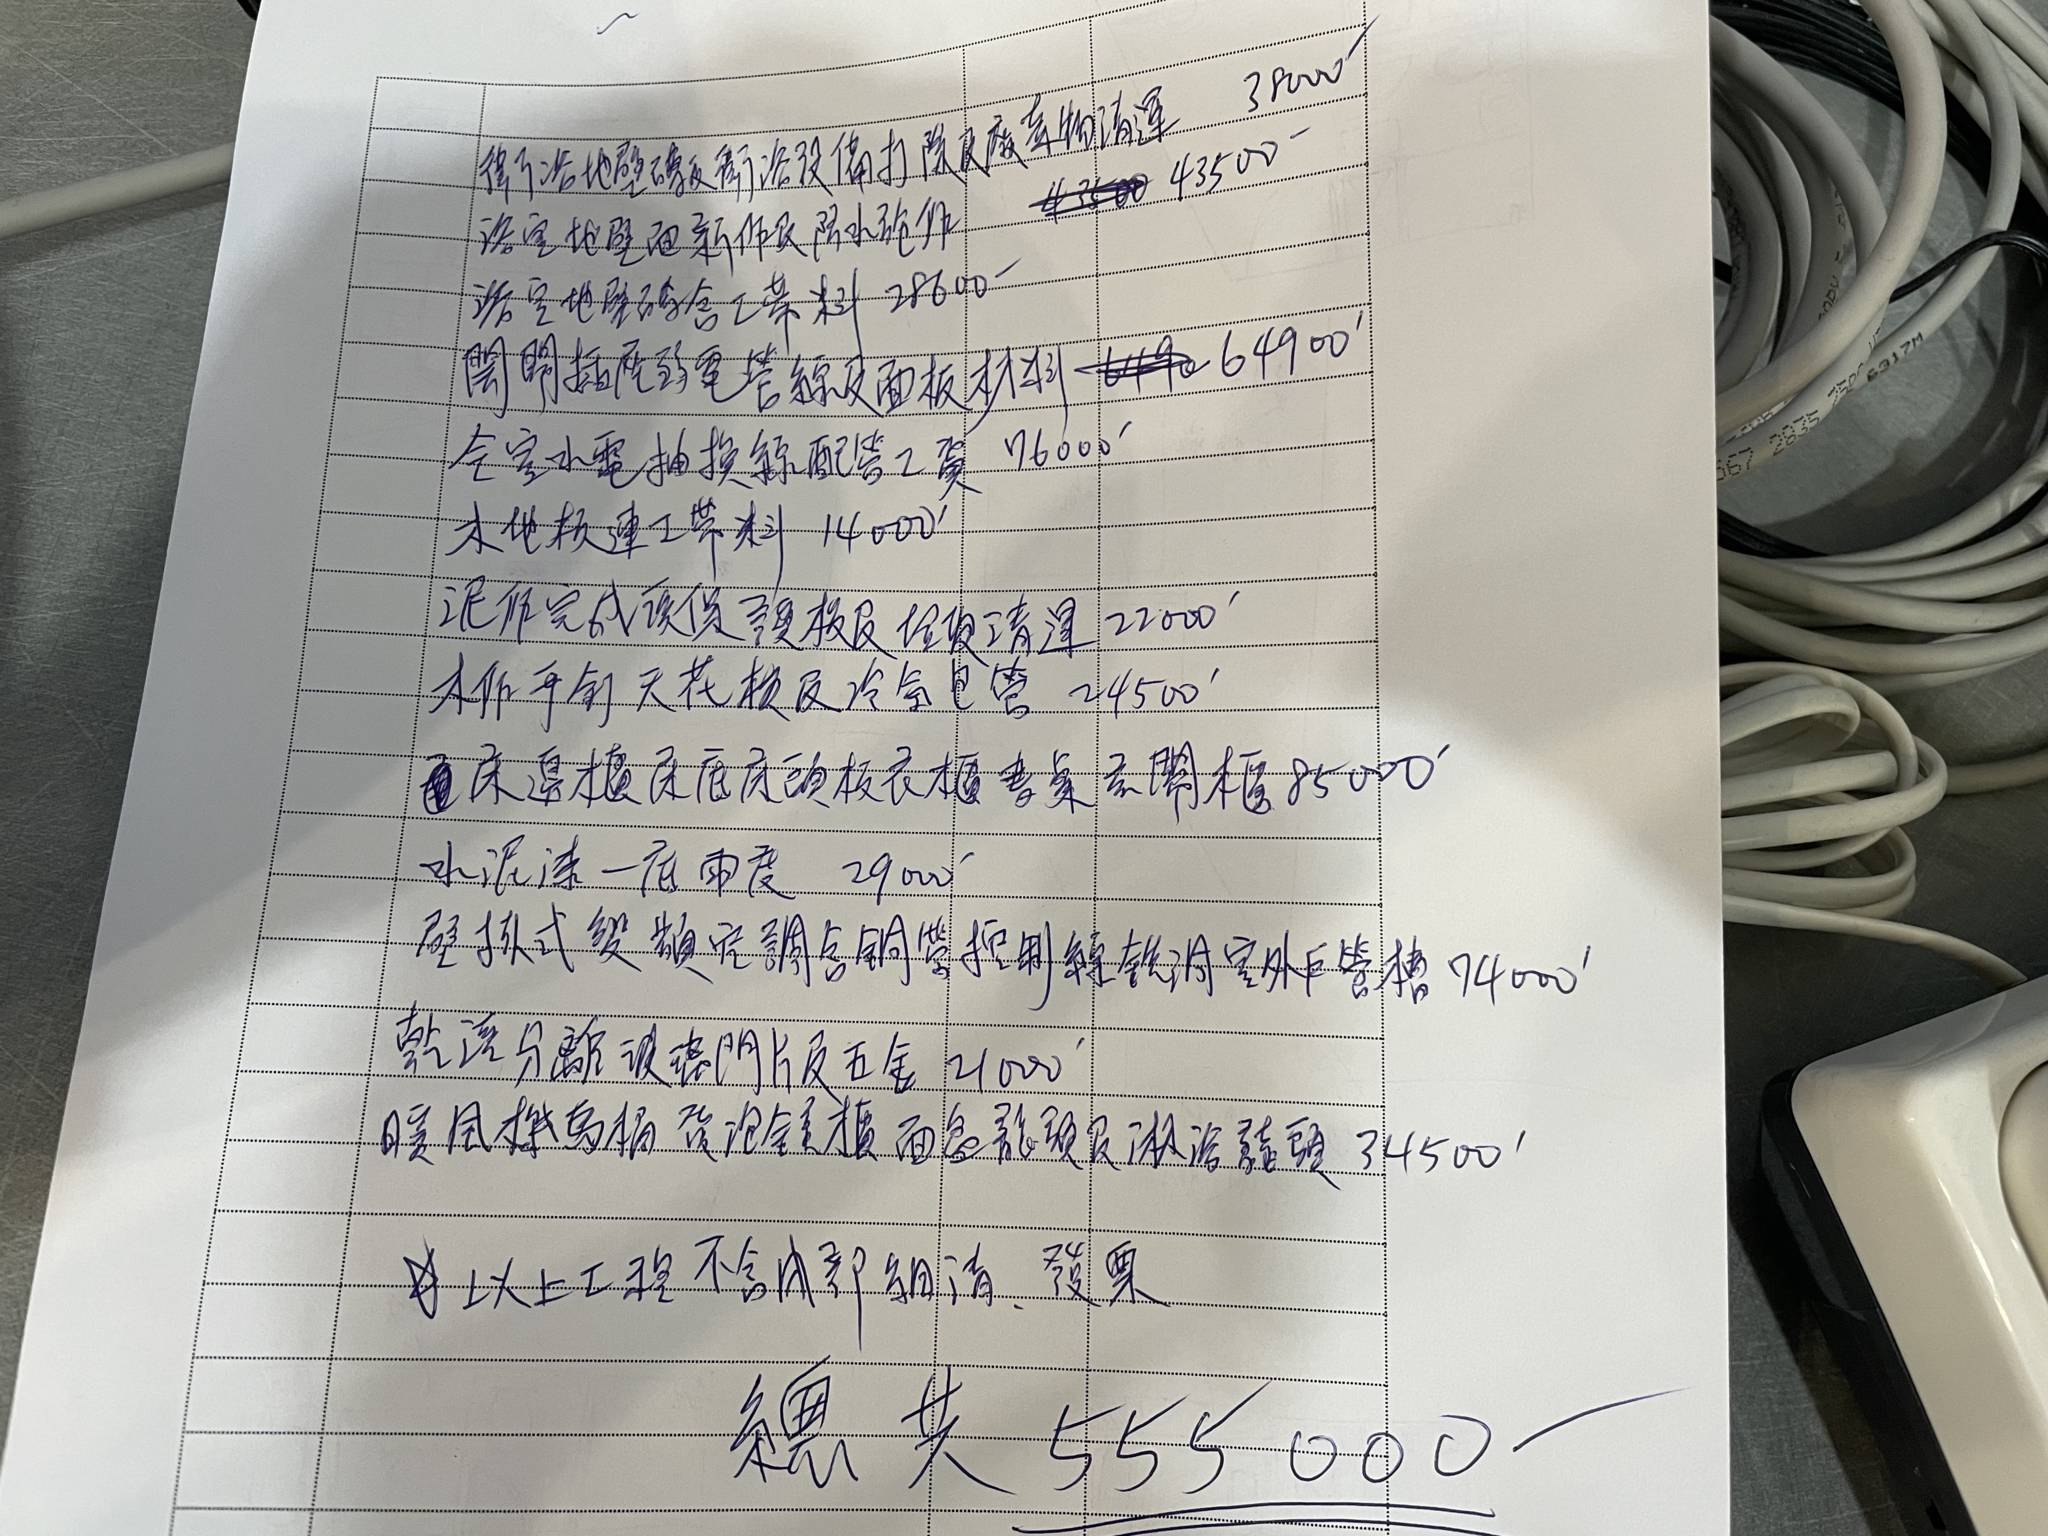 衛浴地壁磚及衛浴設備打除及廢棄物清運 38000
浴室地壁面新作及防水施作 43500 43500-
浴室地壁磚含工帶料 28600-
開關插座弱電管線及面板材料 6490 64900
全室水電抽換線配管工資 76000
木地板連工帶料 14000
泥作完成後保護板及垃圾清運 22000
木作平釘天花板及冷氣包管 24500
床邊櫃床底床頭板衣櫃書桌玄關櫃 85000
水泥漆一底兩度 29000
壁掛式變頻空調含銅管控制線銑洞室外戶管槽 74000
乾溼分離玻璃門片及五金 21000
暖風機馬桶 鏡櫃面盆龍頭及淋浴龍頭 34500
以上工程不含 細清、發票
總共 555000-